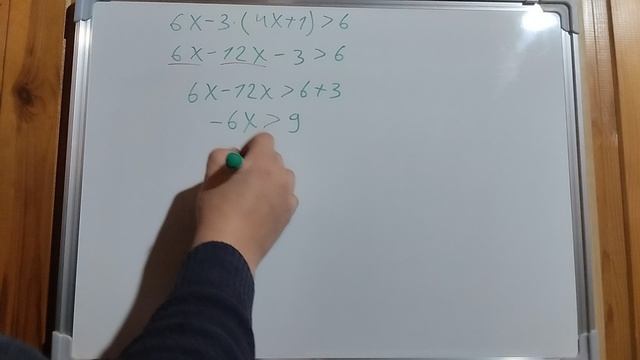 6x-3·(4x+1)>6
6x-12x-3>6
6x-12x>6+3
-6x>9